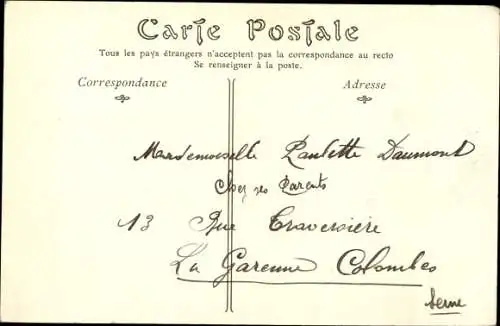 Carte Postale
Tous les pays étrangers n'acceptent pas la correspondance au recto
Se renseigner à la poste.
Correspondance
Adresse
Mademoiselle Paulette Daumont
Chez ses Parents
13 Rue Traversière
La Garenne Colombes
Seine